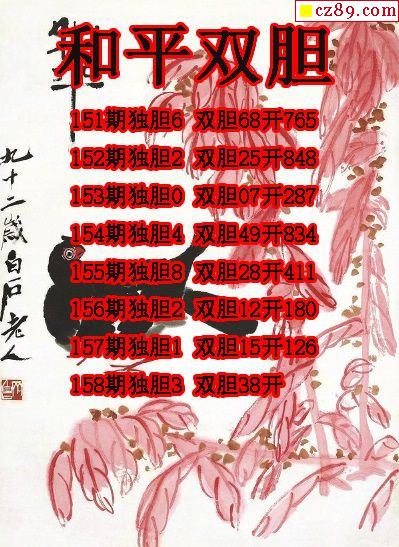 cz89.com
和平双胆
151期独胆6 双胆68开765
152期独胆2 双胆25开848
153期独胆0 双胆07开287
154期独胆4 双胆49开834
155期独胆8 双胆28开411
156期独胆2 双胆12开180
157期独胆1 双胆15开126
158期独胆3 双胆38开
九十二岁白石老人